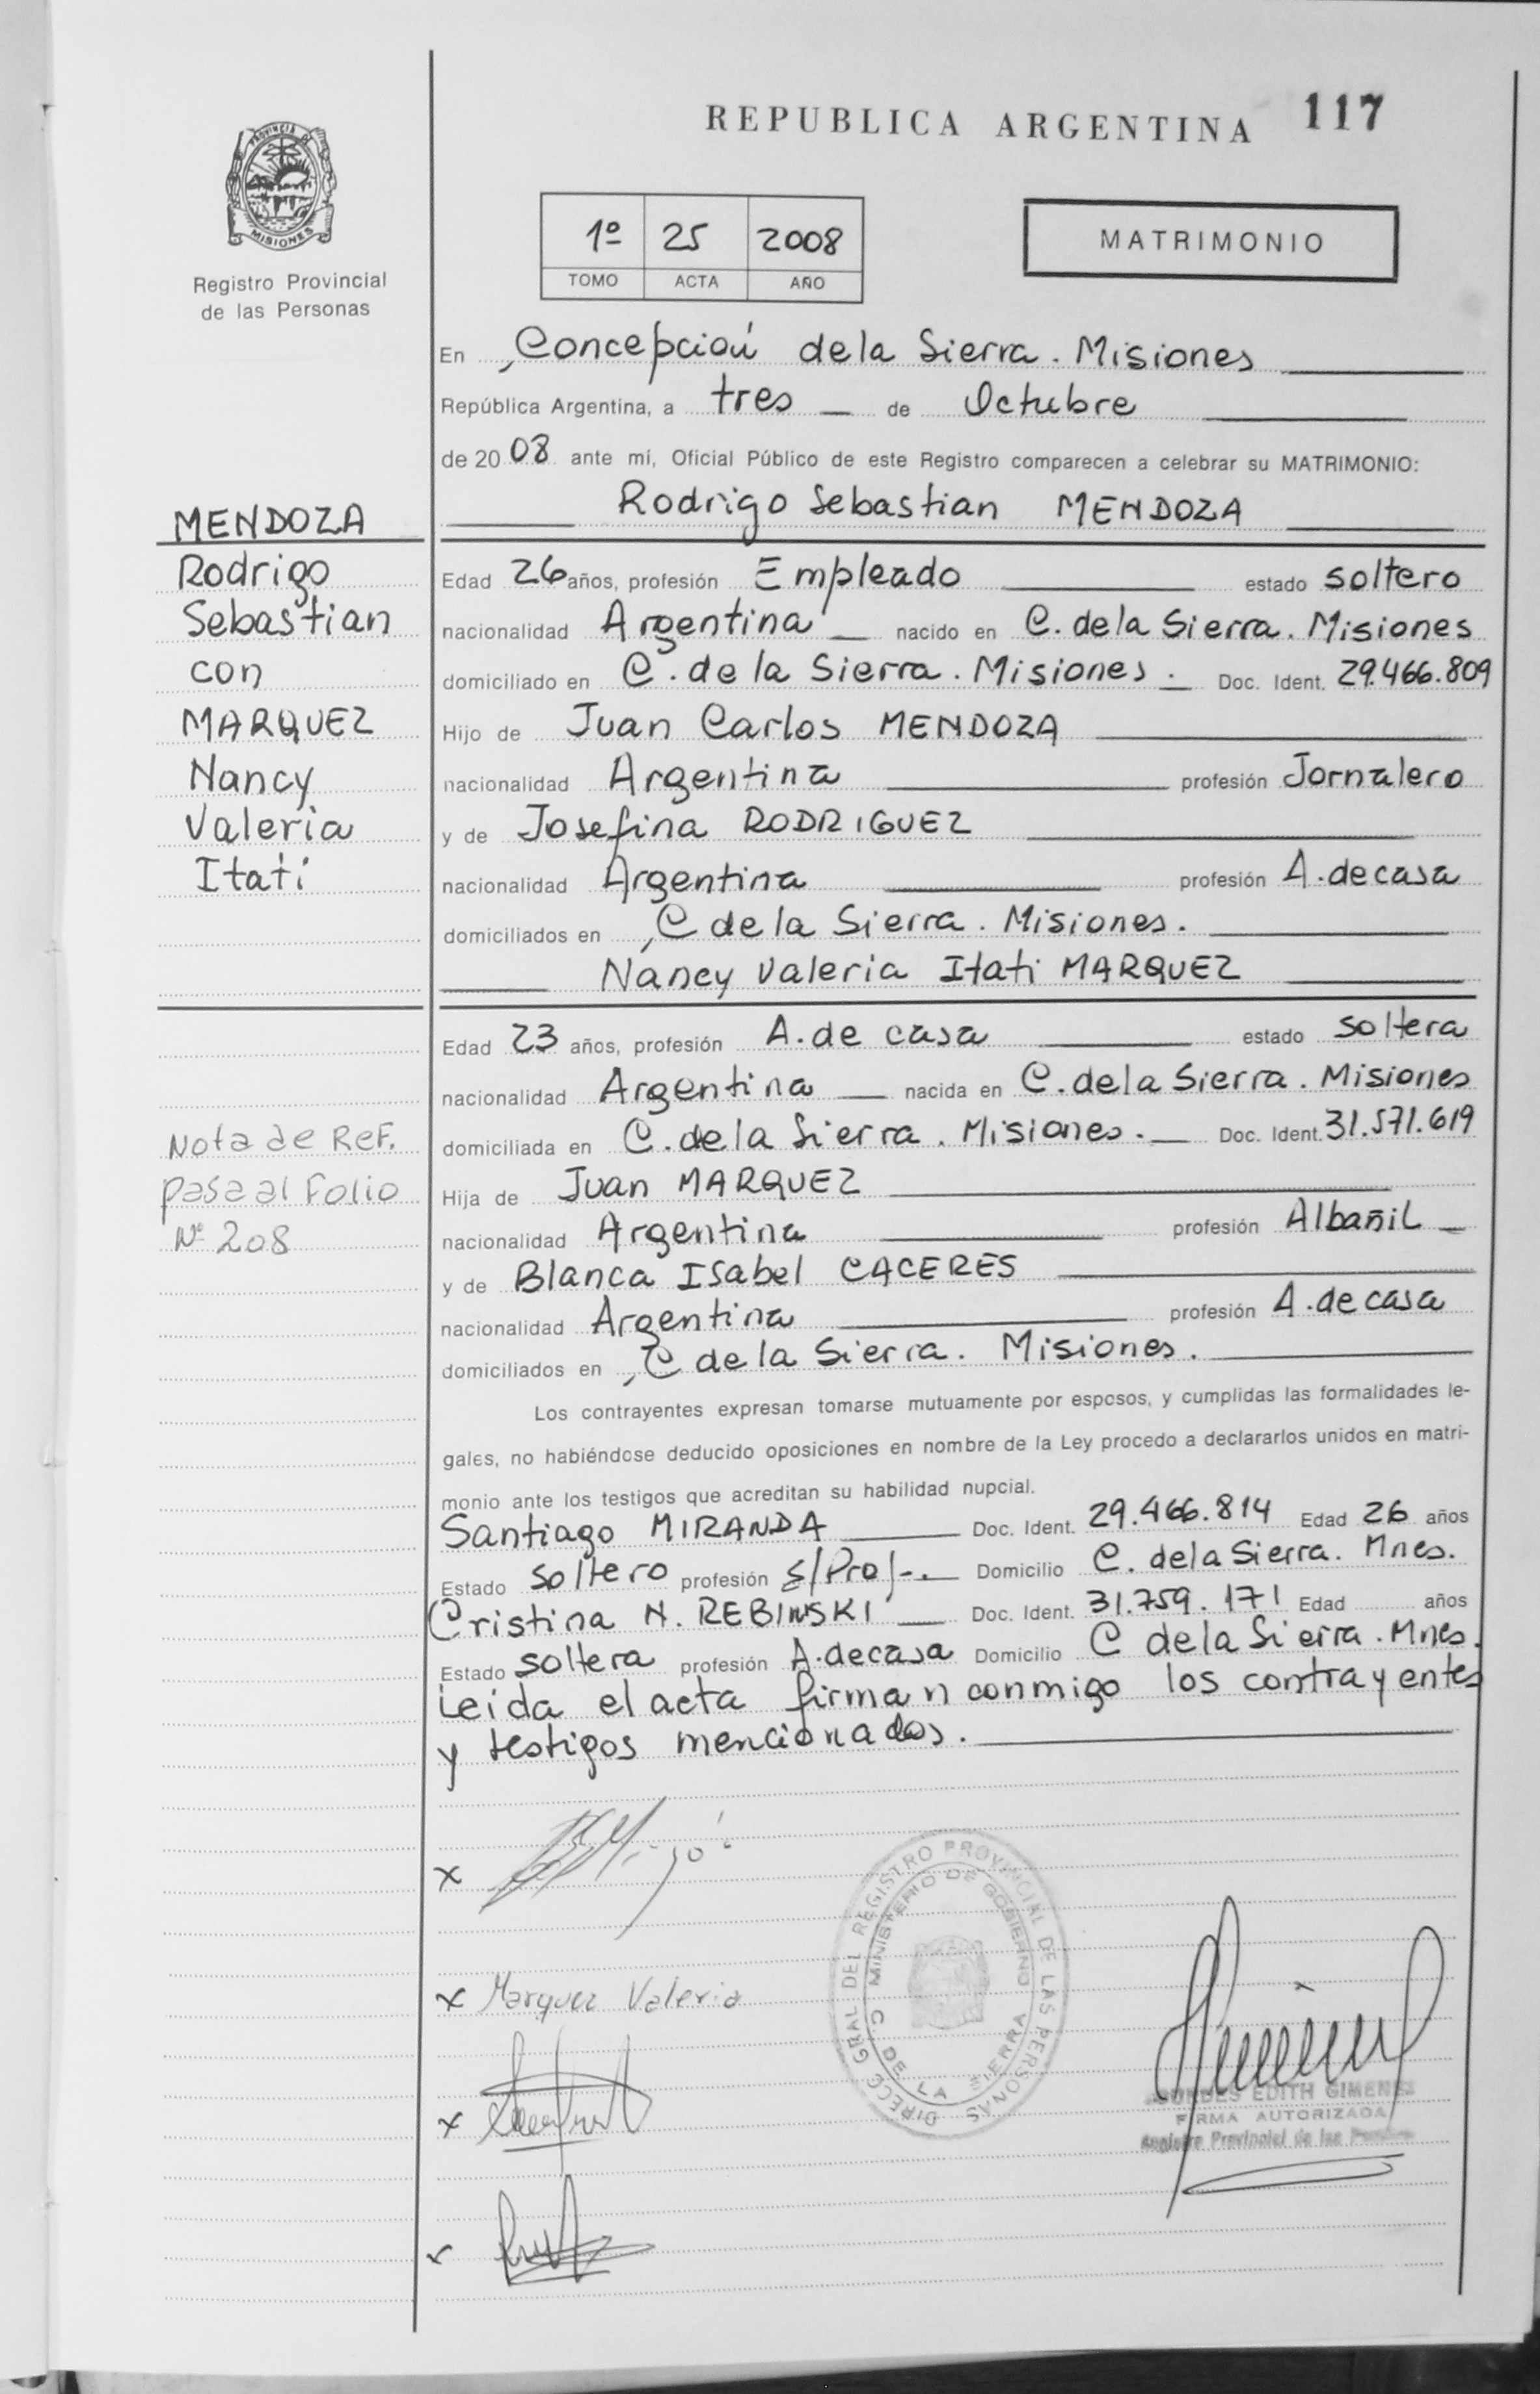 REPUBLICA ARGENTINA 117
PROVINCIA DE
MISIONES
Registro Provincial
de las Personas
1º 25 2008
TOMO ACTA AÑO
MATRIMONIO
En Concepción de la Sierra. Misiones
República Argentina, a tres de Octubre
de 2008 ante mí, Oficial Público de este Registro comparecen a celebrar su MATRIMONIO:
Rodrigo Sebastian MENDOZA
MENDOZA
Rodrigo
Sebastian
con
MARQUEZ
Nancy
Valeria
Itatí
Edad 26 años, profesión Empleado estado soltero
nacionalidad Argentina nacido en C. de la Sierra. Misiones
domiciliado en C. de la Sierra. Misiones. Doc. Ident. 29.466.809
Hijo de Juan Carlos MENDOZA
nacionalidad Argentina profesión Jornalero
y de Josefina RODRIGUEZ
nacionalidad Argentina profesión A. de casa
domiciliados en C de la Sierra. Misiones.
Nancy Valeria Itati MARQUEZ
Edad 23 años, profesión A. de casa estado soltera
nacionalidad Argentina nacida en C. de la Sierra. Misiones
domiciliada en C. de la Sierra. Misiones. Doc. Ident. 31.571.619
Hija de Juan MARQUEZ
nacionalidad Argentina profesión Albañil
y de Blanca Isabel CACERES
nacionalidad Argentina profesión A. de casa
domiciliados en C de la Sierra. Misiones.
Nota de Ref.
pasa al Folio
Nº 208
Los contrayentes expresan tomarse mutuamente por esposos, y cumplidas las formalidades le-
gales, no habiéndose deducido oposiciones en nombre de la Ley procedo a declararlos unidos en matri-
monio ante los testigos que acreditan su habilidad nupcial.
Santiago MIRANDA Doc. Ident. 29.466.814 Edad 26 años
Estado soltero profesión s/Prof-. Domicilio C. de la Sierra. Mnes.
Cristina N. REBINSKI Doc. Ident. 31.759.171 Edad años
Estado soltera profesión A. de casa Domicilio C de la Sierra. Mnes.
Leida el acta firman conmigo los contrayentes
y testigos mencionados.
x
x Marquez Valeria
x
x
DIRECC GRAL DEL REGISTRO PROVINCIAL DE LAS PERSONAS
MINISTERIO DE GOBIERNO
C. DE LA SIERRA
EDITH GIMENEZ
FIRMA AUTORIZADA
Registro Provincial de las